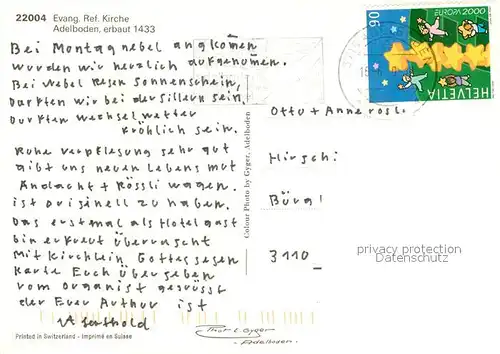 22004 Evang. Ref. Kirche
Adelboden, erbaut 1433
Bei Montagnebel angkomen
wurden wir herzlich aufgenomen.
Bei Nebel Regen Sonnenschein,
Durften wir bei der Sillern sein.
Durften wechsel wetter
fröhlich sein.
Ruhe verpflegung sehr gut
gibt uns neuen Lebens mut
Andacht + Rössli wagen.
ist originell zu haben.
Das erstemal als Hotel gast
bin erfreut überrascht
Mit Kirchlein Gottes segen
Karte Euch übergeben
vom Organist gegrüsst
der Euer Arthur ist
Berthold
Printed in Switzerland - Imprimé en Suisse
Colour Photo by Gyger, Adelboden
90
EUROPA 2000
HELVETIA
Otto + Annerosli
Hirschi
3110
privacy protection
Datenschutz
Phot. E. Gyger
Adelboden.